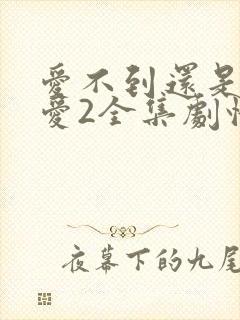 愛不到還是
愛2全集劇情
夜幕下的九尾